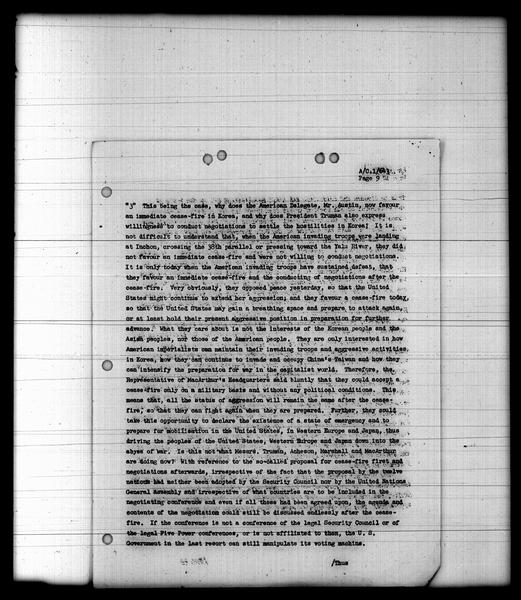 A/C.1/
Page 9
"3 This being the case, why does the American Delegate, Mr. Austin, now favour
an immediate cease-fire in Korea, and why does President Truman also express
willingness to conduct negotiations to settle the hostilities in Korea? It is
not difficult to understand that when the American invading troops were landing
at Inchon, crossing the 38th parallel or pressing toward the Yalu River, they did
not favour an immediate cease-fire and were not willing to conduct negotiations.
It is only today when the American invading troops have sustained defeat, that
they favour an immediate cease-fire and the conducting of negotiations after the
cease-fire. Very obviously, they opposed peace yesterday, so that the United
States might continue to extend her aggression; and they favour a cease-fire today,
so that the United States may gain a breathing space and prepare to attack again,
or at least hold their present aggressive position in preparation for further
advance. What they care about is not the interests of the Korean people and the
Asian peoples, nor those of the American people. They are only interested in how
American imperialists can maintain their invading troops and aggressive activities
in Korea, how they can continue to invade and occupy China's Taiwan and how they
can intensify the preparation for war in the capitalist world. Therefore, the
Representative of MacArthur's Headquarters said bluntly that they could accept a
cease-fire only on a military basis and without any political conditions. This
means that, all the status of aggression will remain the same after the cease-
fire, so that they can fight again when they are prepared. Further, they could
take this opportunity to declare the existence of a state of emergency and to
prepare for mobilisation in the United States, in Western Europe and Japan, thus
driving the peoples of the United States, Western Europe and Japan down into the
abyss of war. Is this not what Messrs. Truman, Acheson, Marshall and MacArthur
are doing now? With reference to the so-called proposal for cease-fire first and
negotiations afterwards, irrespective of the fact that the proposal by the twelve
nations had neither been adopted by the Security Council nor by the United Nations
General Assembly and irrespective of what countries are to be included in the
negotiating conference and even if all these had been agreed upon, the agenda and
contents of the negotiation could still be discussed endlessly after the cease-
fire. If the conference is not a conference of the legal Security Council or of
the legal Five Power conferences, or is not affiliated to them, the U. S.
Government in the last resort can still manipulate its voting machine.
/Thus